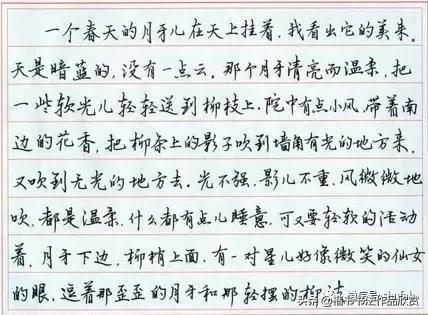 一个春天的月牙儿在天上挂着。我看出它的美来。
天是暗蓝的，没有一点云。那个月牙清亮而温柔，把
一些软光儿轻轻送到柳枝上。院中有点小风，带着南
边的花香，把柳条上的影子吹到墙角有光的地方来，
又吹到无光的地方去。光不强，影儿不重，风微微地
吹，都是温柔，什么都有点儿睡意，可又要轻软的活动
着，月牙下边，柳梢上面，有一对星儿好像微笑的仙女
的眼，逗着那歪歪的月牙和那轻摆的柳
头条 @楷书书法作品欣赏